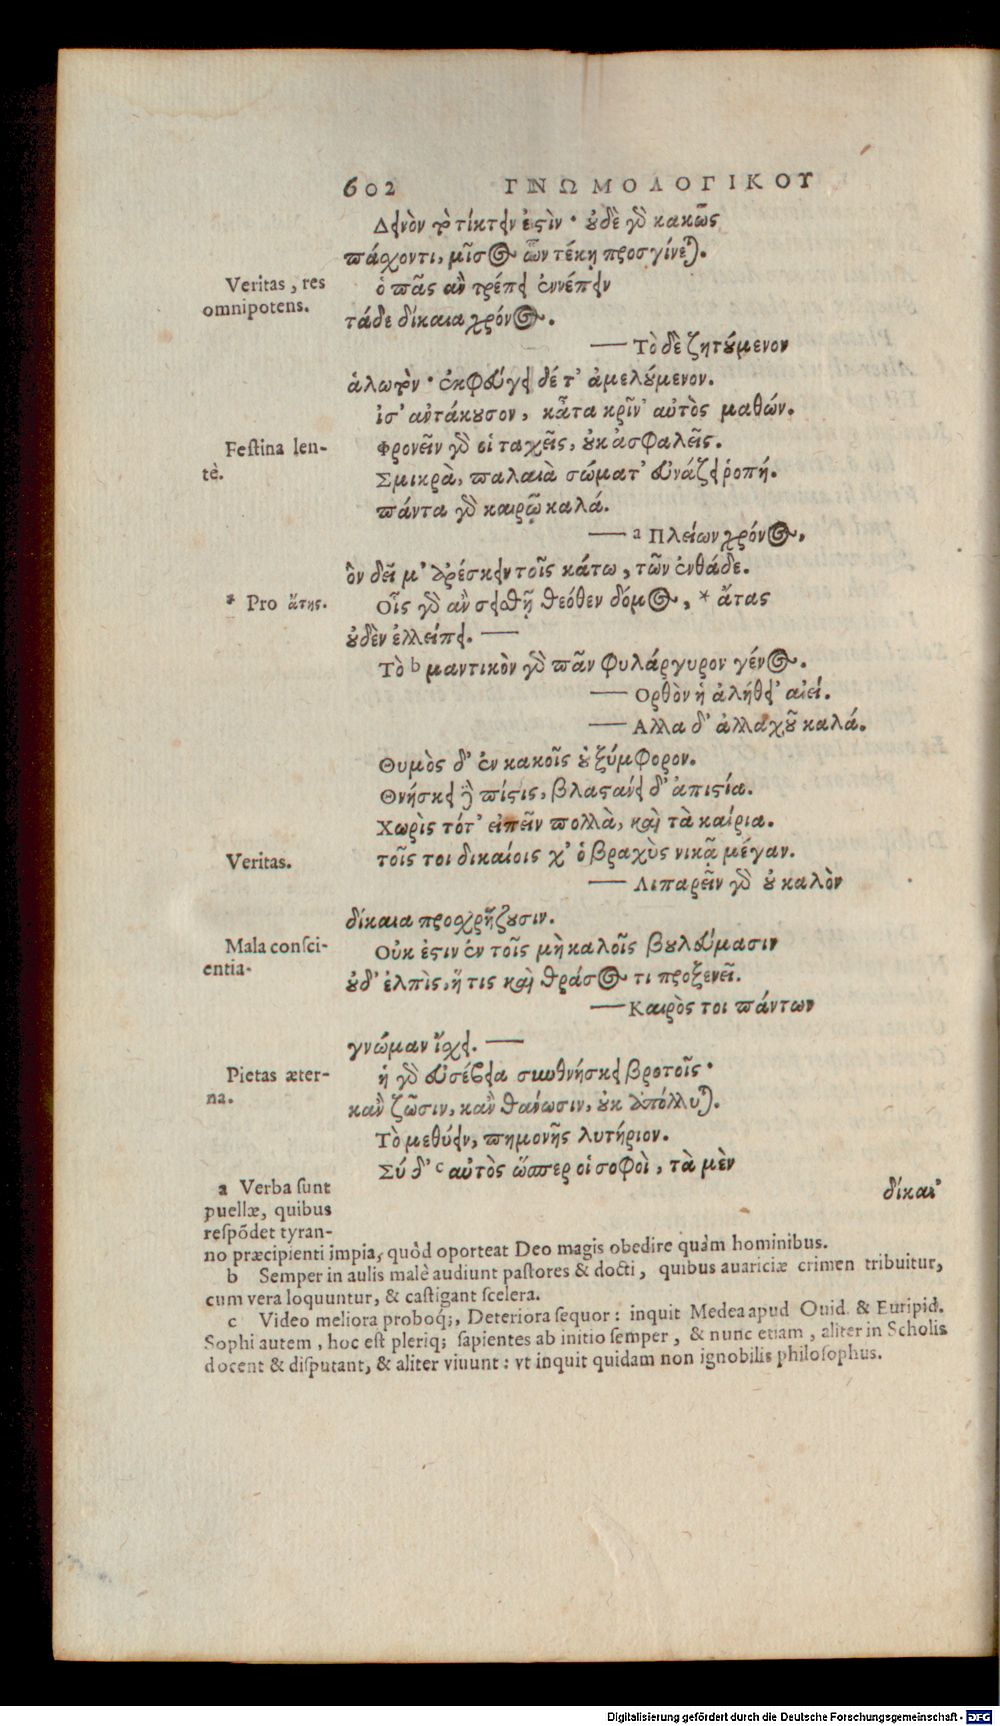 602 ΓΝΩΜΟΛΟΓΙΚΟΥ
Δεινὸν τὸ τίκτειν ἐστὶν· οὐδὲ γὰρ κακῶς
πάσχοντι, μῖσος ὧν τέκῃ προσγίνεται.
Veritas, res
omnipotens.
ὁ πᾶς ἂν πρέπει ἐννέπειν
τάδε δίκαια χρόνος.
— Τὸ δὲ ζητούμενον
ἁλωτὸν· ἐκφεύγει δέ τ' ἀμελούμενον.
ἰσ' αὐτάκουσον, κᾆτα κρῖν' αὐτὸς μαθών.
Festina len-
tè.
Φρονεῖν γὰρ οἱ ταχεῖς, οὐκ ἀσφαλεῖς.
Σμικρὰ, παλαιὰ σώματ' εὐνάζει ῥοπή.
πάντα γὰρ καιρῷ καλά.
— a Πλείων χρόνος,
ὃν δεῖ μ' ἀρέσκειν τοῖς κάτω, τῶν ἐνθάδε.
* Pro ἄτης.
Οἷς γὰρ ἂν σεισθῇ θεόθεν δόμος, * ἄτας
οὐδὲν ἐλλείπει. —
Τὸ b μαντικὸν γὰρ πᾶν φυλάργυρον γένος.
— Ορθὸν ἡ ἀλήθει' αἰεί.
— Αλλα δ' ἀλλαχοῦ καλά.
Θυμὸς δ' ἐν κακοῖς οὐ ξύμφορον.
Θνήσκει δὲ πίστις, βλαστάνει δ' ἀπιστία.
Χωρὶς τότ' εἰπεῖν πολλὰ, καὶ τὰ καίρια.
Veritas.
τοῖς τοι δικαίοις χ' ὁ βραχὺς νικᾷ μέγαν.
— Λιπαρεῖν γὰρ οὐ καλὸν
δίκαια προσχρῄζουσιν.
Mala consci-
entia.
Οὐκ ἔστιν ἐν τοῖς μὴ καλοῖς βουλεύμασιν
οὐδ' ἐλπὶς, ἥτις καὶ θράσος τι προξενεῖ.
— Καιρὸς τοι πάντων
γνώμαν ἴσχει. —
Pietas æter-
na.
ἡ γὰρ εὐσέβεια συνθνήσκει βροτοῖς·
κἂν ζῶσιν, κἂν θάνωσιν, οὐκ ἀπόλλυται.
Τὸ μεθύειν, πημονῆς λυτήριον.
Σύ δ' c αὐτὸς ὥσπερ οἱ σοφοὶ, τὰ μὲν
δίκαι'
a Verba sunt
puellæ, quibus
respõdet tyran-
no præcipienti impia, quòd oporteat Deo magis obedire quàm hominibus.
b Semper in aulis malè audiunt pastores & docti, quibus auariciæ crimen tribuitur,
cum vera loquuntur, & castigant scelera.
c Video meliora proboq;, Deteriora sequor: inquit Medea apud Ouid. & Euripid.
Sophi autem, hoc est pleriq; sapientes ab initio semper, & nunc etiam, aliter in Scholis
docent & disputant, & aliter viuunt: vt inquit quidam non ignobilis philosophus.
Digitalisierung gefördert durch die Deutsche Forschungsgemeinschaft - DFG